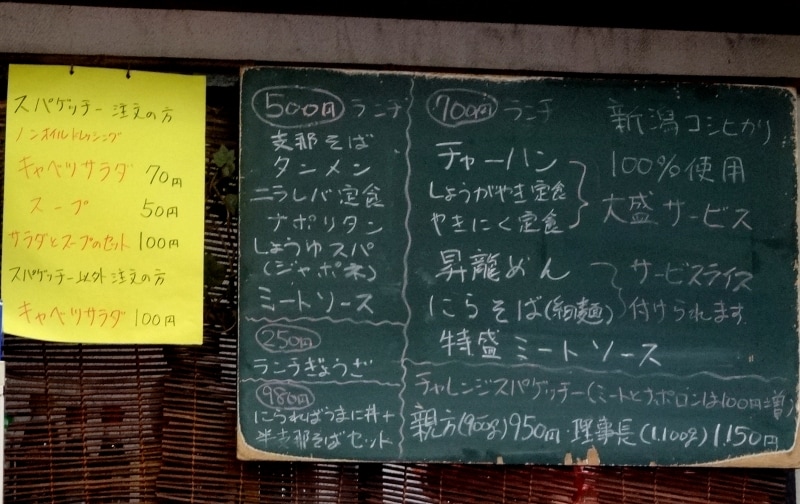 スパゲッチー注文の方
ノンオイルドレッシング
キャベツサラダ 70円
スープ 50円
サラダとスープのセット 100円
スパゲッチー以外注文の方
キャベツサラダ 100円
500円 ランチ
支那そば
タンメン
ニラレバ定食
ナポリタン
しょうゆスパ
(ジャポネ)
ミートソース
250円
ランチぎょうざ
980円
にらればうまに丼+
半支那そばセット
700円 ランチ
チャーハン
しょうがやき定食
やきにく定食
新潟コシヒカリ
100%使用
大盛サービス
昇龍めん
にらそば(細麺)
サービスライス
付けられます
特盛ミートソース
チャレンジスパゲッチー(ミートとナポロンは100円増)
親方(900g)950円・理事長(1,100g)1,150円